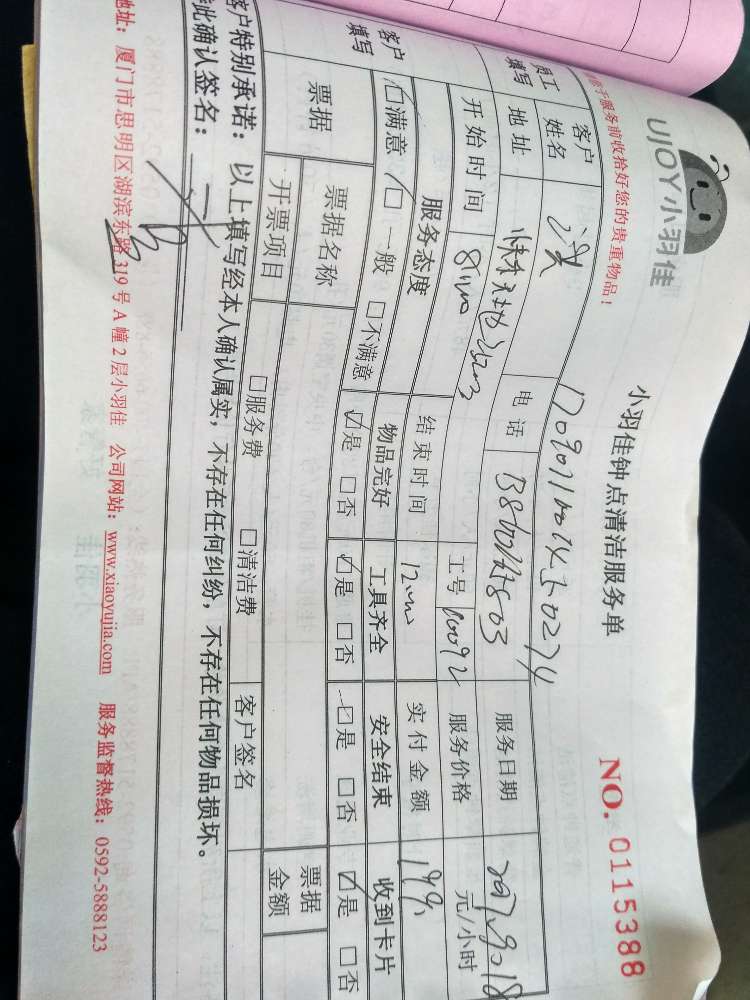 UJOY小羽佳
小羽佳钟点清洁服务单
NO. 0115388
于服务前收拾好您的贵重物品!
1709071401450274
员工填写
客户姓名 电话 服务日期 2017.9.18
地址 工号 10092 服务价格 元/小时
开始时间 8:00 结束时间 12:00 实付金额
客户填写
服务态度 物品完好 工具齐全 安全结束 收到卡片
☑满意 □一般 □不满意 ☑是 □否 ☑是 □否 ☑是 □否 ☑是 □否
票据 票据名称 □服务费 □清洁费 客户签名 票据金额
开票项目
客户特别承诺:以上填写经本人确认属实,不存在任何纠纷,不存在任何物品损坏。
此确认签名:
地址:厦门市思明区湖滨东路319号A幢2层小羽佳 公司网站:www.xiaoyujia.com 服务监督热线:0592-5888123